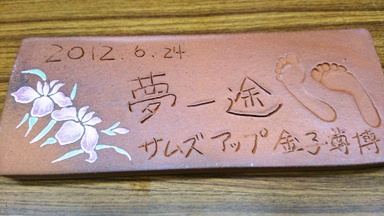 2012.6.24
夢一途
サムズアップ 金子尊博